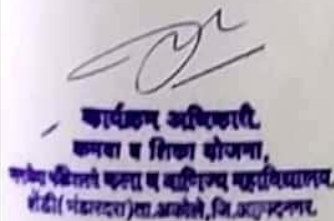 कार्यक्रम अधिकारी,
कमवा व शिका योजना,
कला व वाणिज्य महाविद्यालय,
शेंडी(भंडारदरा)ता.अकोले,जि.अहमदनगर.